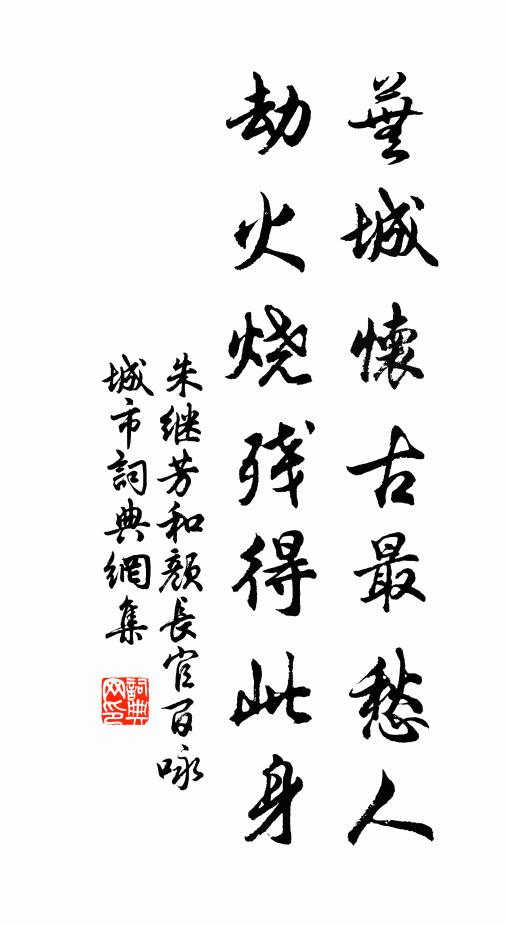 蕪城懷古最愁人
劫火燒残得此身
朱继芳和顏長官百咏
城市詞典網集
詞典
网印